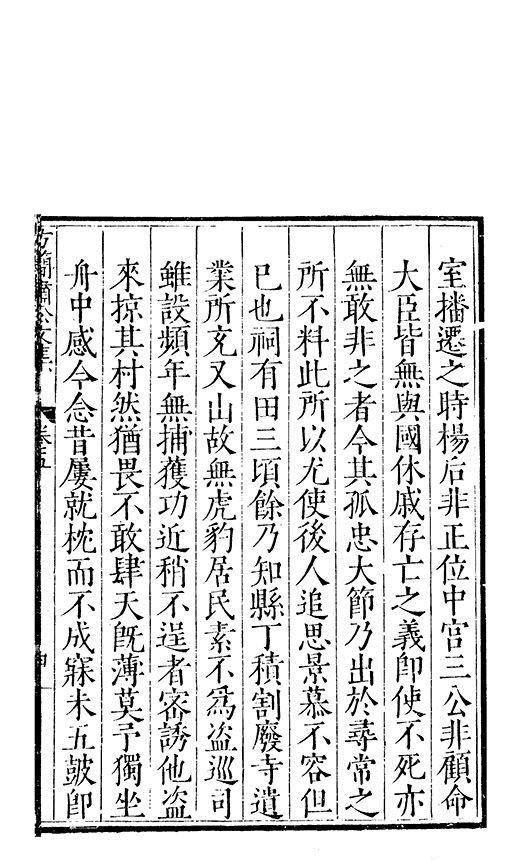 室播遷之時楊后非正位中宮三公非顧命
大臣皆無與國休戚存亡之義卽使不死亦
無敢非之者今其孤忠大節乃出於尋常之
所不料此所以尤使後人追思景慕不容但
已也祠有田三頃餘乃知縣丁積割廢寺遺
業所充又山故無虎豹居民素不爲盜巡司
雖設頻年無捕獲功近稍不逞者密誘他盜
來掠其村然猶畏不敢肆天旣薄莫予獨坐
舟中感今念昔屢就枕而不成寐未五鼓卽
方簡肅公文集 卷五